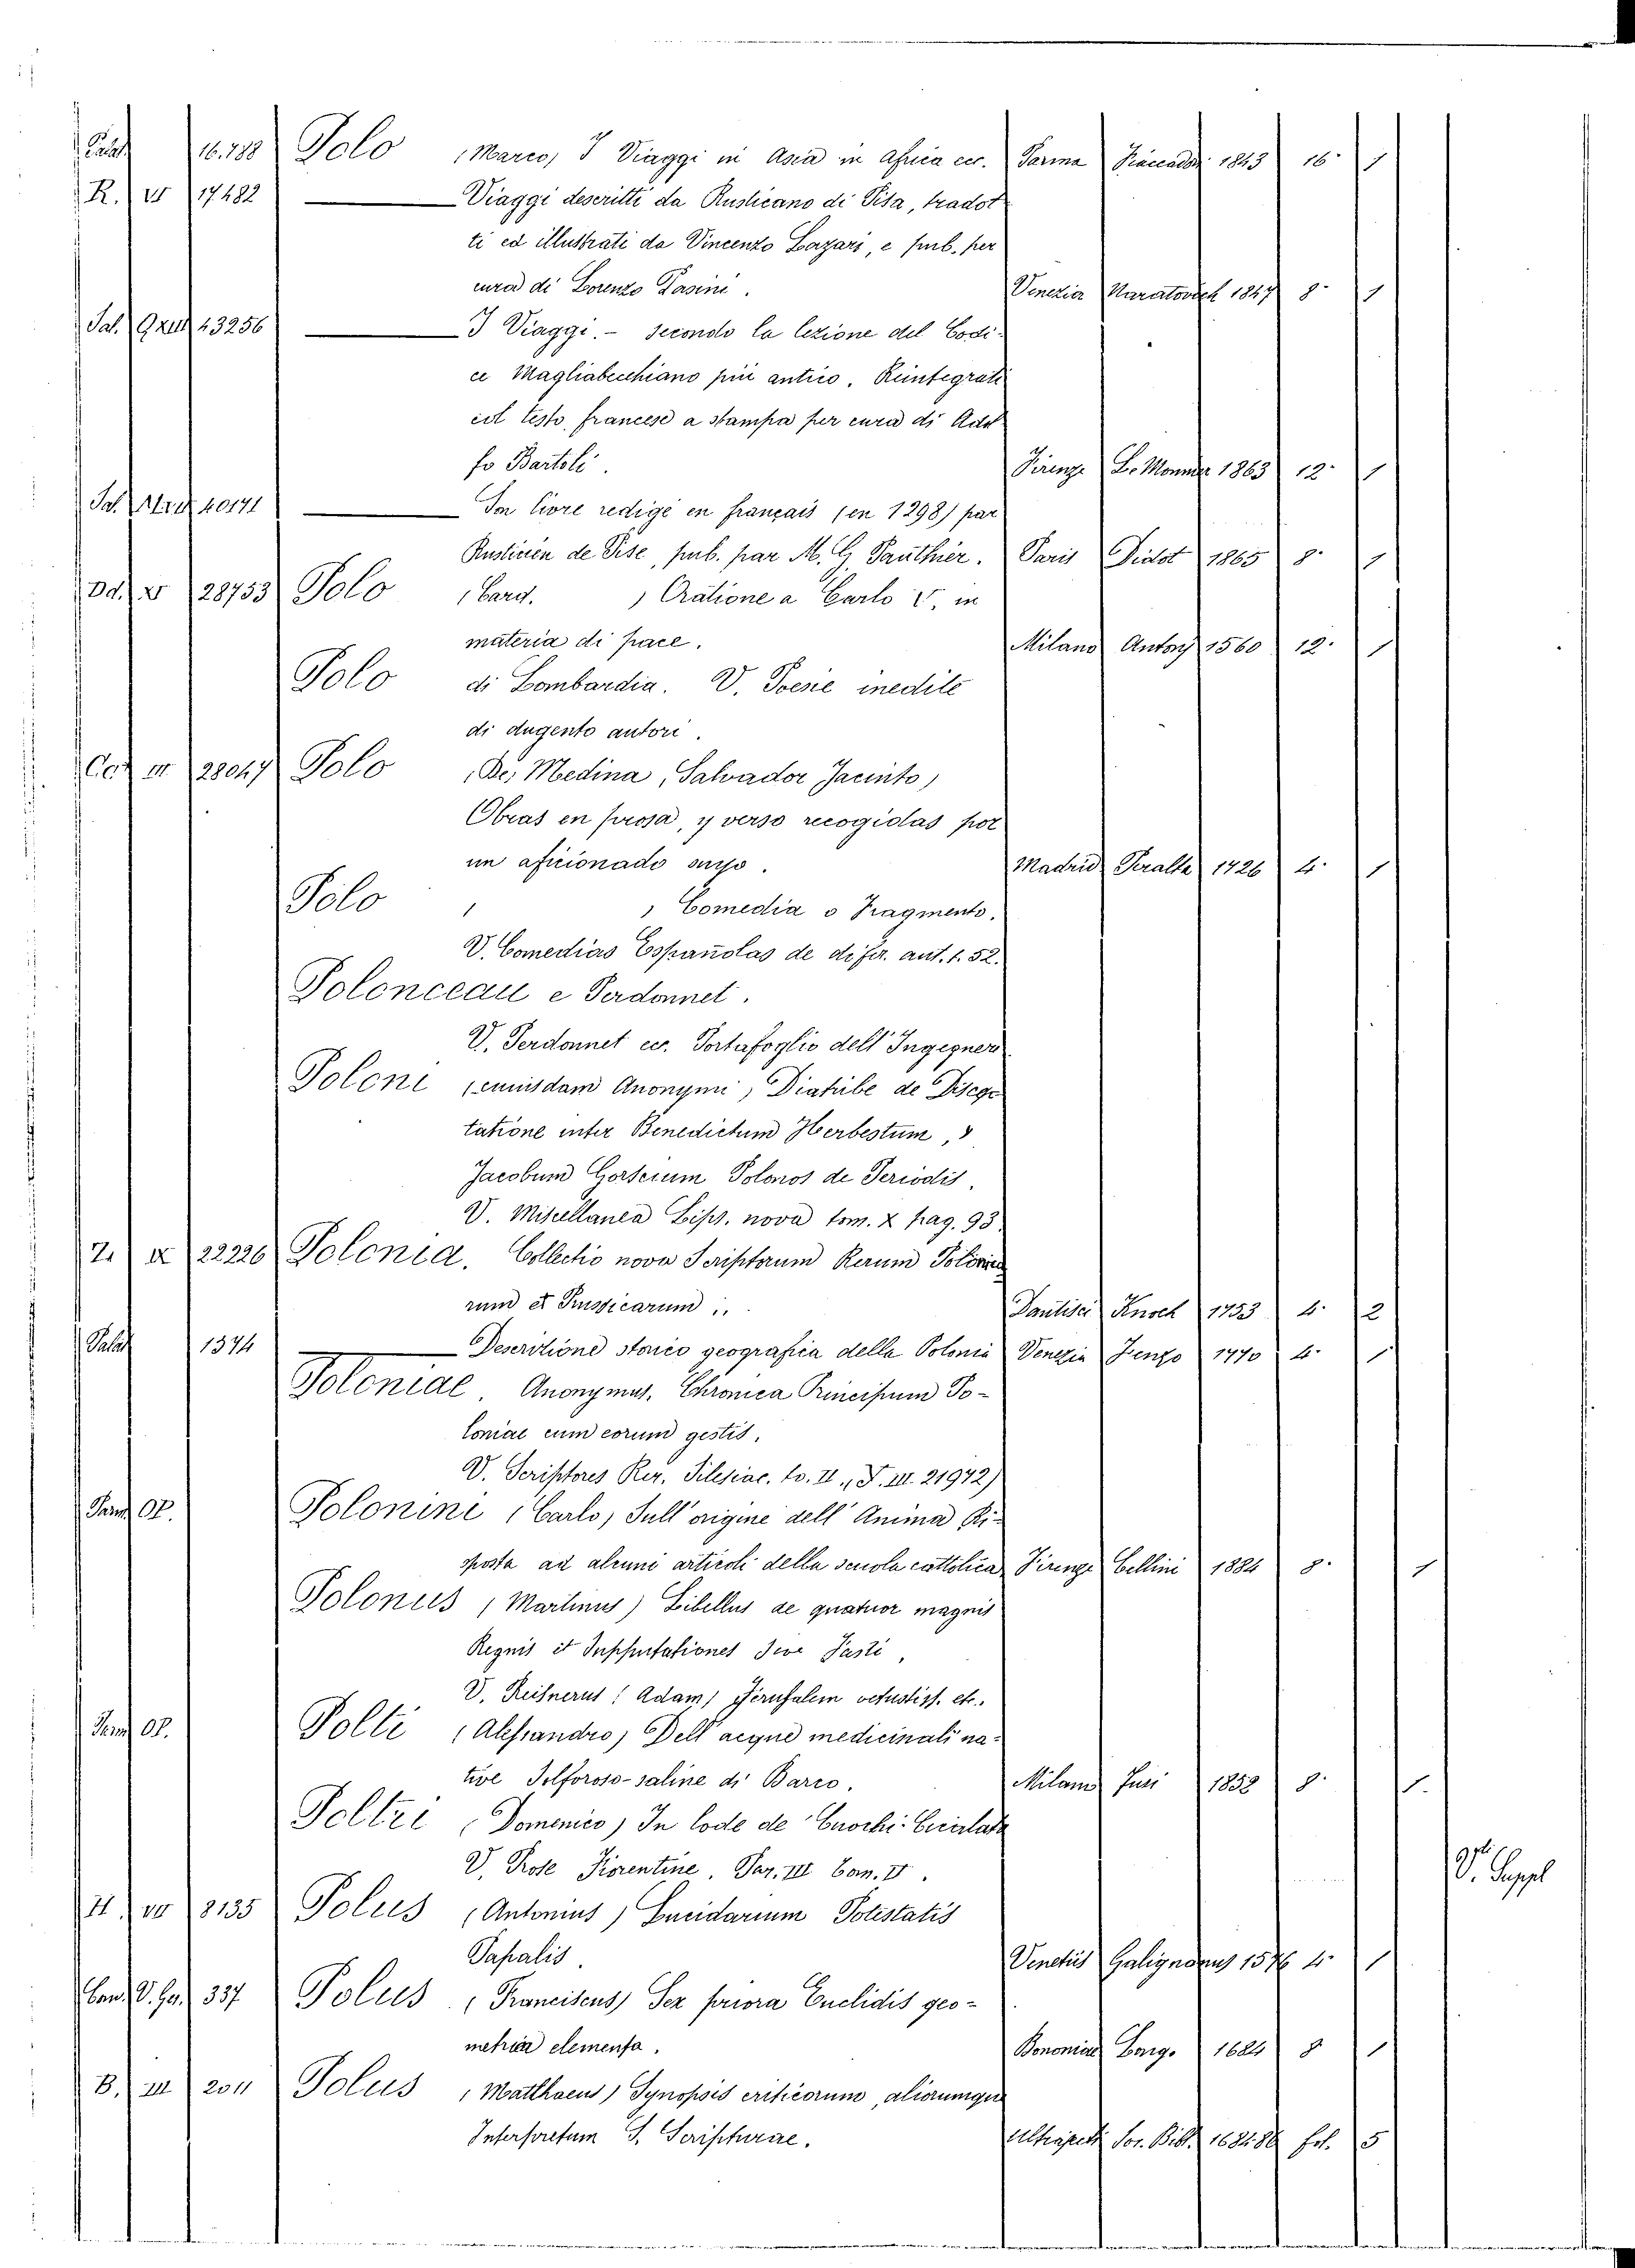 Palat. 16.788 Polo (Marco) I Viaggi in Asia in Africa ecc. Parma Fiaccadori 1843 16° 1
R. VI 17482 Viaggi descritti da Rusticano di Pisa, tradot
ti ed illustrati da Vincenzo Lazari, e pub. per
cura di Lorenzo Pasini. Venezia Naratovich 1847 8° 1
Sal. 43256 I Viaggi. - secondo la lezione del Codi-
ce Magliabecchiano più antico. Reintegrati
col testo francese a stampa per cura di Adol
fo Bartoli. Firenze Le Monnier 1863 12° 1
Sal. 40171 Im livre redigé en français (en 1298) par
Rusticien de Pise, pub. par M. G. Pauthier. Paris Didot 1865 8° 1
Dd. V 28753 Polo (Card. ) Oratione a Carlo V, in
materia di pace. Milano Antony 1560 12° 1
Polo di Lombardia. V. Poesie inedite
di dugento autori.
Cc. III 28047 Polo (De) Medina, Salvador Jacinto)
Obras en prosa, y verso recogidas por
un aficionado suyo. Madrid Peralta 1726 4° 1
Polo ( ) Comedia o Fragmento.
V. Comedias Españolas de difer. aut. t. 52.
Polonceau e Perdonnet.
V. Perdonnet ecc. Portafoglio dell' Ingegnere
Poloni (cuiusdam Anonymi) Diatribe de Discep
tatione inter Benedictum Herbestum, &
Jacobum Gorscium Polonos de Periodis.
V. Miscellanea Lips. nova tom. X pag. 93
Z. IX 22226 Polonia. Collectio nova Scriptorum Rerum Polonica
rum et Prussicarum. Dantisci Knoch 1753 4° 2
Palat. 1374 Descritione storico geografica della Polonia Venezia Fenzo 1770 4° 1
Poloniae. Anonymus, Chronica Principum Po-
loniae cum eorum gestis.
V. Scriptores Rer. Silesiac. to. II., T. III. 21972)
Panc. Op. Polonini (Carlo) Sull' origine dell' Anima Ri-
sposta ad alcuni articoli della scuola cattolica Firenze Cellini 1884 8° 1
Polonus (Martinus) Libellus de quatuor magnis
Regnis it Supputationes sive Fasti,
V. Reisnerus (Adam) Jerusalem vetustiss. etc.
Panc. Op. Polti (Alessandro) Dell' acque medicinali na-
tive Solforoso-saline di Barco. Milano Fusi 1858 8° 1
Poltri (Domenico) In lode de' Cuochi: Cicalata
V. Prose Fiorentine. Par. III Com. II.
H. VII 8135 Polus (Antonius) Lucidarium Potestatis
Papalis. Venetiis Galignanus 1576 4° 1
V. 337 Polus (Franciscus) Sex priora Euclidis geo-
metrica elementa. Bononiae 8 1
B. III 2011 Polus (Matthaeus) Synopsis criticorum, aliorumque
Interpretum S. Scripturae. Ultraject. Soc. Bibl. 1684.86 fol. 5
V. Suppl